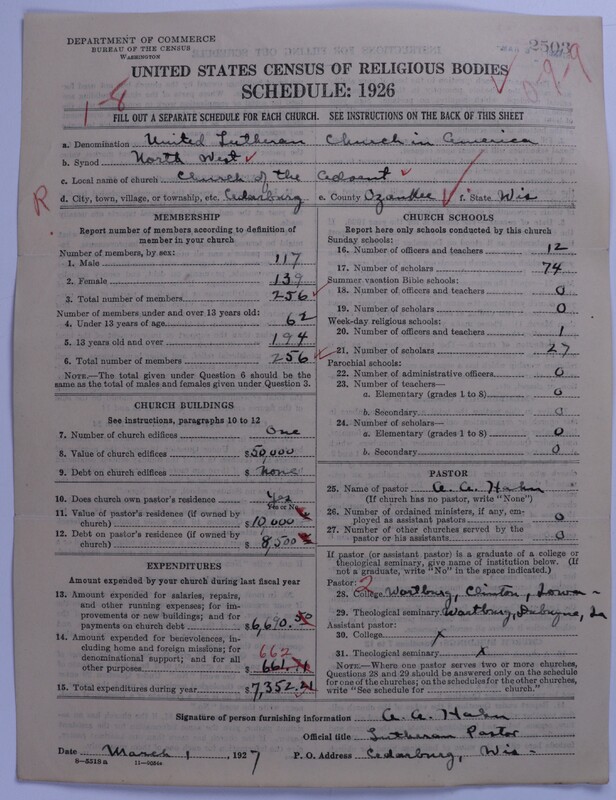 DEPARTMENT OF COMMERCE
BUREAU OF THE CENSUS
WASHINGTON
2503
UNITED STATES CENSUS OF RELIGIOUS BODIES
SCHEDULE: 1926
1-8
0-9-9
FILL OUT A SEPARATE SCHEDULE FOR EACH CHURCH. SEE INSTRUCTIONS ON THE BACK OF THIS SHEET
a. Denomination United Lutheran Church in America
b. Synod North West
c. Local name of church Church of the Advent
R
d. City, town, village, or township, etc. Cedarburg e. County Ozaukee f. State Wis
MEMBERSHIP
Report number of members according to definition of
member in your church
Number of members, by sex:
1. Male 117
2. Female 139
3. Total number of members 256
Number of members under and over 13 years old:
4. Under 13 years of age 62
5. 13 years old and over 194
6. Total number of members 256
NOTE.—The total given under Question 6 should be the
same as the total of males and females given under Question 3.
CHURCH BUILDINGS
See instructions, paragraphs 10 to 12
7. Number of church edifices One
8. Value of church edifices $50,000
9. Debt on church edifices $ None
10. Does church own pastor's residence Yes
Yes or No
11. Value of pastor's residence (if owned by
church) $10,000
12. Debt on pastor's residence (if owned by
church) $8,500
EXPENDITURES
Amount expended by your church during last fiscal year
13. Amount expended for salaries, repairs,
and other running expenses; for im-
provements or new buildings; and for
payments on church debt $6,690.50
14. Amount expended for benevolences,
including home and foreign missions; for
denominational support; and for all
other purposes 662
$ 661.71
15. Total expenditures during year $7,352.21
CHURCH SCHOOLS
Report here only schools conducted by this church
Sunday schools:
16. Number of officers and teachers 12
17. Number of scholars 74
Summer vacation Bible schools:
18. Number of officers and teachers 0
19. Number of scholars 0
Week-day religious schools:
20. Number of officers and teachers 1
21. Number of scholars 27
Parochial schools:
22. Number of administrative officers 0
23. Number of teachers—
a. Elementary (grades 1 to 8) 0
b. Secondary 0
24. Number of scholars—
a. Elementary (grades 1 to 8) 0
b. Secondary 0
PASTOR
25. Name of pastor A. A. Hahn
(If church has no pastor, write "None")
26. Number of ordained ministers, if any, em-
ployed as assistant pastors 0
27. Number of other churches served by the
pastor or his assistants 0
If pastor (or assistant pastor) is a graduate of a college or
theological seminary, give name of institution below. (If
not a graduate, write "No" in the space indicated.)
Pastor: 2
28. College Wartburg, Clinton, Iowa-
29. Theological seminary Wartburg, Dubuque, Ia
Assistant pastor:
30. College x
31. Theological seminary x
NOTE.—Where one pastor serves two or more churches,
Questions 28 and 29 should be answered only on the schedule
for one of the churches; on the schedules for the other churches,
write "See schedule for church."
Signature of person furnishing information A. A. Hahn
Official title Lutheran Pastor
Date March 1, 1927 P. O. Address Cedarburg, Wis-
8-5518a